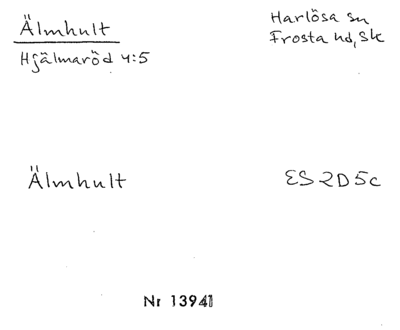 Älmhult
Harlösa sn
Hjälmaröd 4:5
Frosta hd, Sk
Älmhult
ES 2D5c
Nr 13941